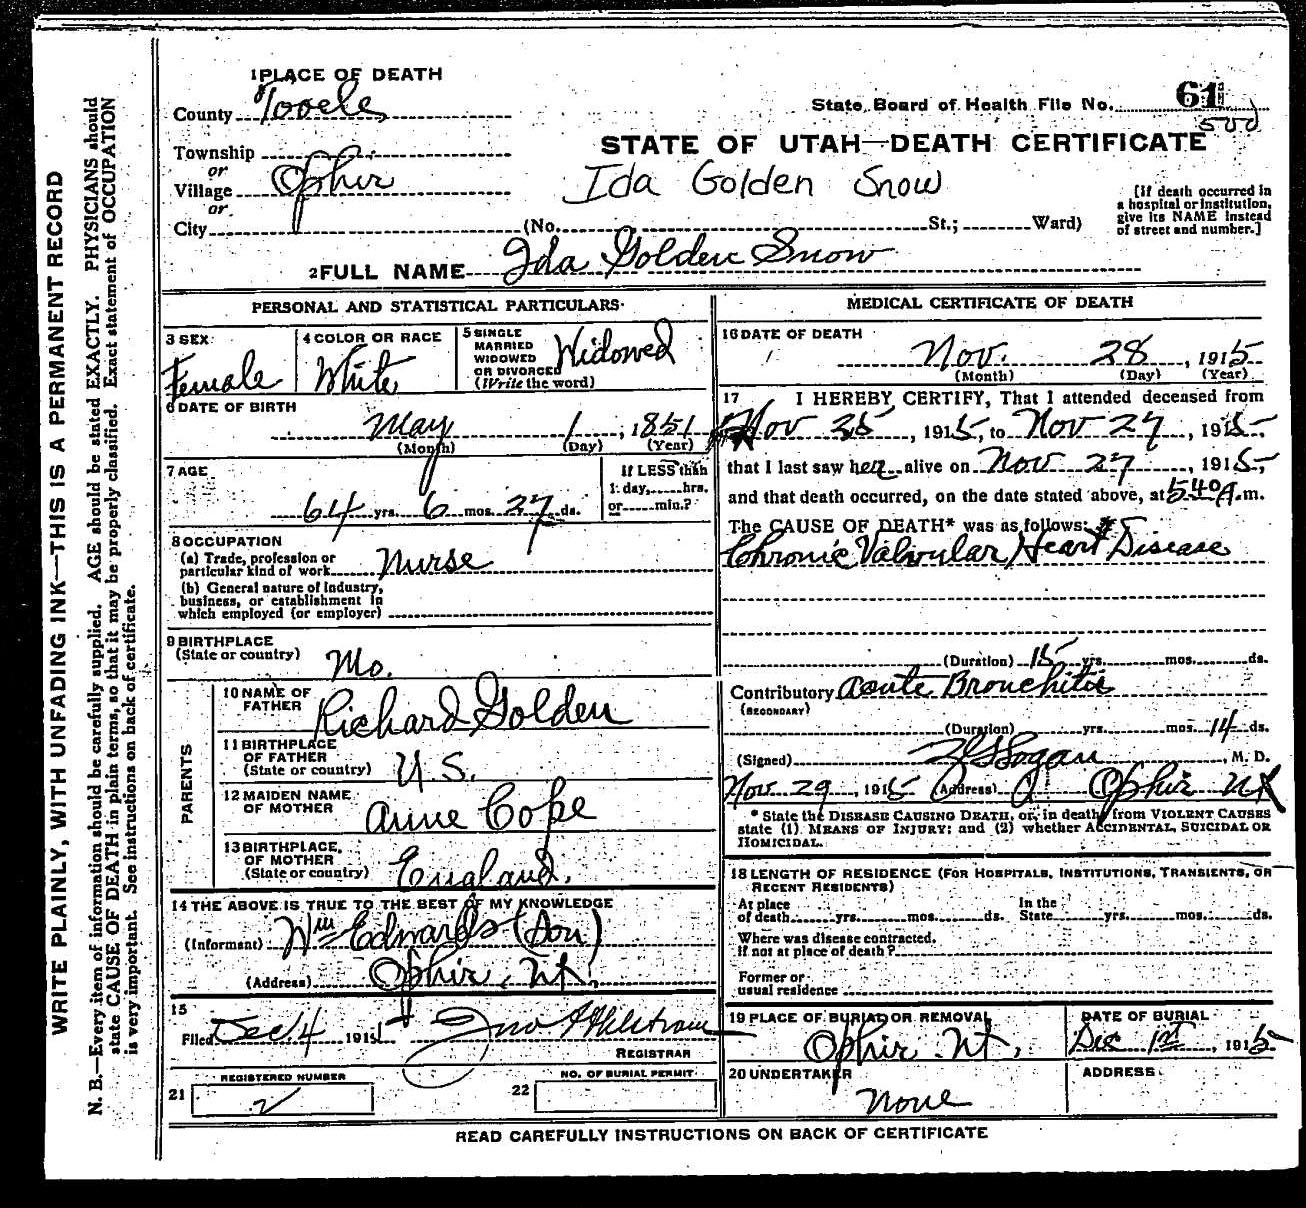 WRITE PLAINLY, WITH UNFADING INK—THIS IS A PERMANENT RECORD
N. B.—Every item of information should be carefully supplied. AGE should be stated EXACTLY. PHYSICIANS should
state CAUSE OF DEATH in plain terms, so that it may be properly classified. Exact statement of OCCUPATION
is very important. See instructions on back of certificate.
1 PLACE OF DEATH
County Tooele
State Board of Health File No. 61
500
Township
or
Village Ophir
or
City
STATE OF UTAH—DEATH CERTIFICATE
Ida Golden Snow
(No. St.; Ward)
[If death occurred in
a hospital or institution,
give its NAME instead
of street and number.]
2 FULL NAME Ida Golden Snow
PERSONAL AND STATISTICAL PARTICULARS
3 SEX
Female
4 COLOR OR RACE
White
5 SINGLE
MARRIED
WIDOWED
OR DIVORCED
(Write the word)
Widowed
6 DATE OF BIRTH
May 1, 1851
(Month) (Day) (Year)
7 AGE
64 yrs. 6 mos. 27 ds.
If LESS than
1 day, hrs.
or min.?
8 OCCUPATION
(a) Trade, profession or
particular kind of work Nurse
(b) General nature of Industry,
business, or establishment in
which employed (or employer)
9 BIRTHPLACE
(State or country)
Mo.
PARENTS
10 NAME OF
FATHER
Richard Golden
11 BIRTHPLACE
OF FATHER
(State or country) U.S.
12 MAIDEN NAME
OF MOTHER
Anne Cope
13 BIRTHPLACE,
OF MOTHER
(State or country) England.
14 THE ABOVE IS TRUE TO THE BEST OF MY KNOWLEDGE
(Informant) Wm Edwards (Son)
(Address) Ophir, Ut.
15
Filed Dec. 4 1915 Jno Ahlstrom
REGISTRAR
21 REGISTERED NUMBER
2
22 NO. OF BURIAL PERMIT
MEDICAL CERTIFICATE OF DEATH
16 DATE OF DEATH
Nov. 28, 1915
(Month) (Day) (Year)
17 I HEREBY CERTIFY, That I attended deceased from
Nov 25, 1915, to Nov 27, 1915,
that I last saw her alive on Nov 27, 1915,
and that death occurred, on the date stated above, at 5 40 A.m.
The CAUSE OF DEATH* was as follows:
Chronic Valvular Heart Disease
(Duration) 15 yrs. mos. ds.
Contributory Acute Bronchitis
(SECONDARY)
(Duration) yrs. mos. 14 ds.
(Signed) Logan, M. D.
Nov. 29, 1915 (Address) Ophir Ut
* State the DISEASE CAUSING DEATH, or, in death from VIOLENT CAUSES
state (1) MEANS OF INJURY; and (2) whether ACCIDENTAL, SUICIDAL OR
HOMICIDAL.
18 LENGTH OF RESIDENCE (FOR HOSPITALS, INSTITUTIONS, TRANSIENTS, OR
RECENT RESIDENTS)
At place
of death yrs. mos. ds.
In the
State yrs. mos. ds.
Where was disease contracted,
if not at place of death?
Former or
usual residence
19 PLACE OF BURIAL OR REMOVAL
Ophir Ut,
DATE OF BURIAL
Dec 1st, 1915
20 UNDERTAKER
None
ADDRESS
READ CAREFULLY INSTRUCTIONS ON BACK OF CERTIFICATE